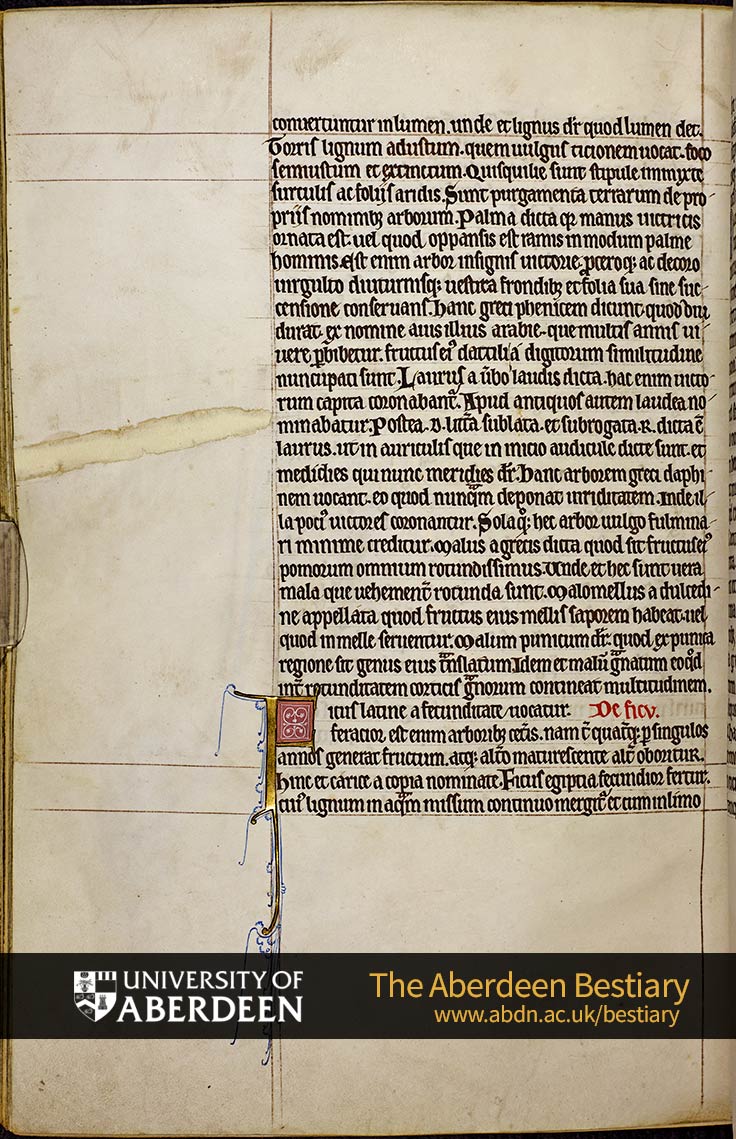 conuertuntur in lumen. unde et lignus dr̄ quod lumen det.
Torris lignum adustum. quem uulgus ticionem uocat. foco
semiustum et extinctum. Quisquilie sunt stipule immixte
surculis ac folijs aridis. Sunt purgamenta terrarum de pro-
priis nominibꝫ arborum. Palma dicta qꝛ manus uictricis
ornata est. uel quod oppansis est ramis in modum palme
hominis. Est enim arbor insignis uictorie. p̄ceroqꝫ ac decoro
uirgulto diuturnisqꝫ uestita frondibꝫ et folia sua sine suc-
censione conseruans. Hanc greci phenicem dicunt. quod diu
durat. ex nomine auis illius arabie. que multis annis ui-
uere ꝑhibetur. fructus eiꝰ dactili a digitorum similitudine
nuncupati sunt. Laurus a ūbo laudis dicta. hac enim uicto-
rum capita coronabant᷑. Apud antiquos autem laudea no-
minabatur. Postea .d. litt̄a sublata. et subrogata .R. dicta ē
laurus. ut in auriculis que in inicio audicule dicte sunt. et
medidies qui nunc meridies dr̄. Hanc arborem greci daphi-
nem uocant. eo quod nunqͣm deponat uiriditatem. Inde il-
la pociꝰ uictores coronantur. Sola qꝫ hec arbor uulgo fulmina-
ri minime creditur. Malus a grecis dicta quod sit fructus eiꝰ
pomorum omnium rotundissimus. Unde et hec sunt uera
mala que uehement᷑ rotunda sunt. Malomellus a dulcedi-
ne appellata quod fructus eius mellis saporem habeat. uel
quod in melle seruentur. Malum punicum dr̄. quod ex punica
regione sit genus eius tͣnslatum. Idem et malū gͣnatum eo qͦd
int᷑ rotunditatem corticis gͣnorum contineat multitudinem.
Ficus latine a fecunditate uocatur. De ficu.
feracior est enim arboribꝫ cet᷑is. nam t᷑ quat᷑qꝫ ꝑ singulos
annos generat fructum. atqꝫ alt᷑o maturescente alt᷑ oboritur.
Hinc et carice a copia nominate. Ficus egiptia fecundior fertur.
cuiꝰ lignum in aqͣm missum continuo mergit᷑ et cum in limo
UNIVERSITY OF
ABERDEEN
The Aberdeen Bestiary
www.abdn.ac.uk/bestiary